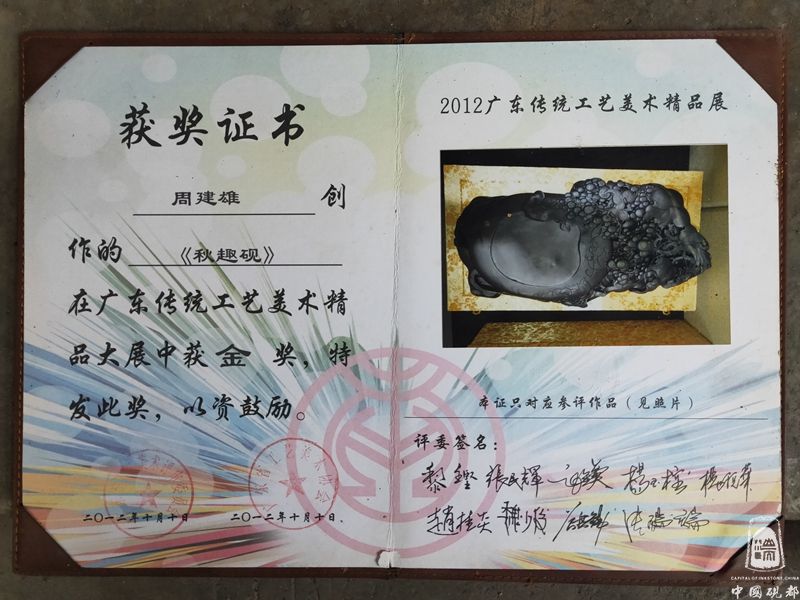 获奖证书
周建雄 创
作的 《秋趣砚》
在广东传统工艺美术精
品大展中获金奖，特
发此奖，以资鼓励。
二〇一二年十月十日
二〇一二年十月十日
2012广东传统工艺美术精品展
本证只对应参评作品（见照片）
评委签名：
黎铿 張民輝
趙桂炎
CAPITAL OF INKSTONE, CHINA
中國硯都